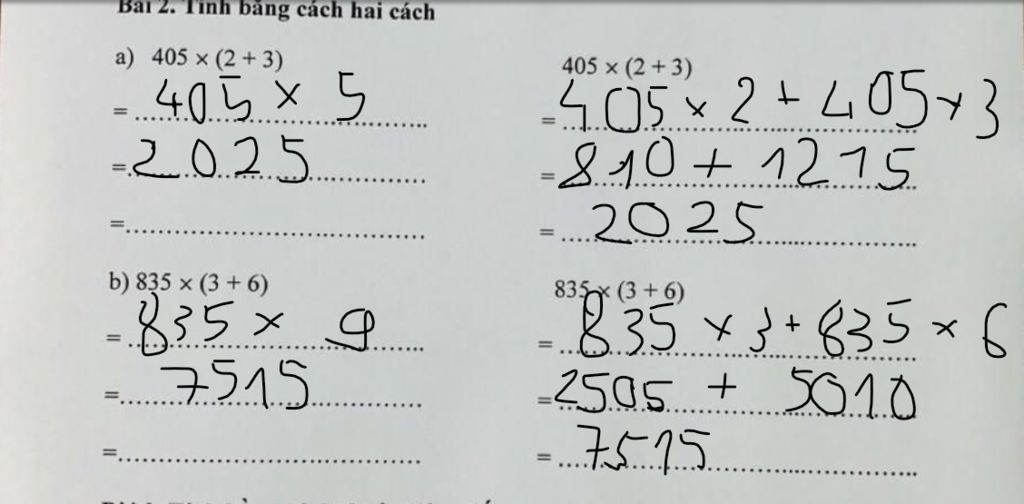 Bài 2. Tính bằng cách hai cách
a) 405 × (2 + 3)
= 405 × 5
= 2025
=
405 × (2 + 3)
= 405 × 2 + 405 × 3
= 810 + 1215
= 2025
b) 835 × (3 + 6)
= 835 × 9
= 7515
=
835 × (3 + 6)
= 835 × 3 + 835 × 6
= 2505 + 5010
= 7515